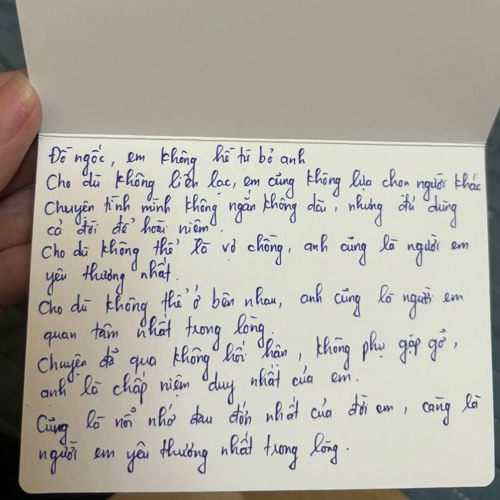 Đồ ngốc, em không hề từ bỏ anh
Cho dù không liên lạc, em cũng không lựa chọn người khác
Chuyện tình mình không ngắn không dài, nhưng đủ dùng
cả đời để hoài niệm.
Cho dù không thể là vợ chồng, anh cũng là người em
yêu thương nhất.
Cho dù không thể ở bên nhau, anh cũng là người em
quan tâm nhất trong lòng.
Chuyện đã qua không hối hận, không phụ gặp gỡ,
anh là chấp niệm duy nhất của em.
Cũng là nỗi nhớ đau đớn nhất của đời em, càng là
người em yêu thương nhất trong lòng.